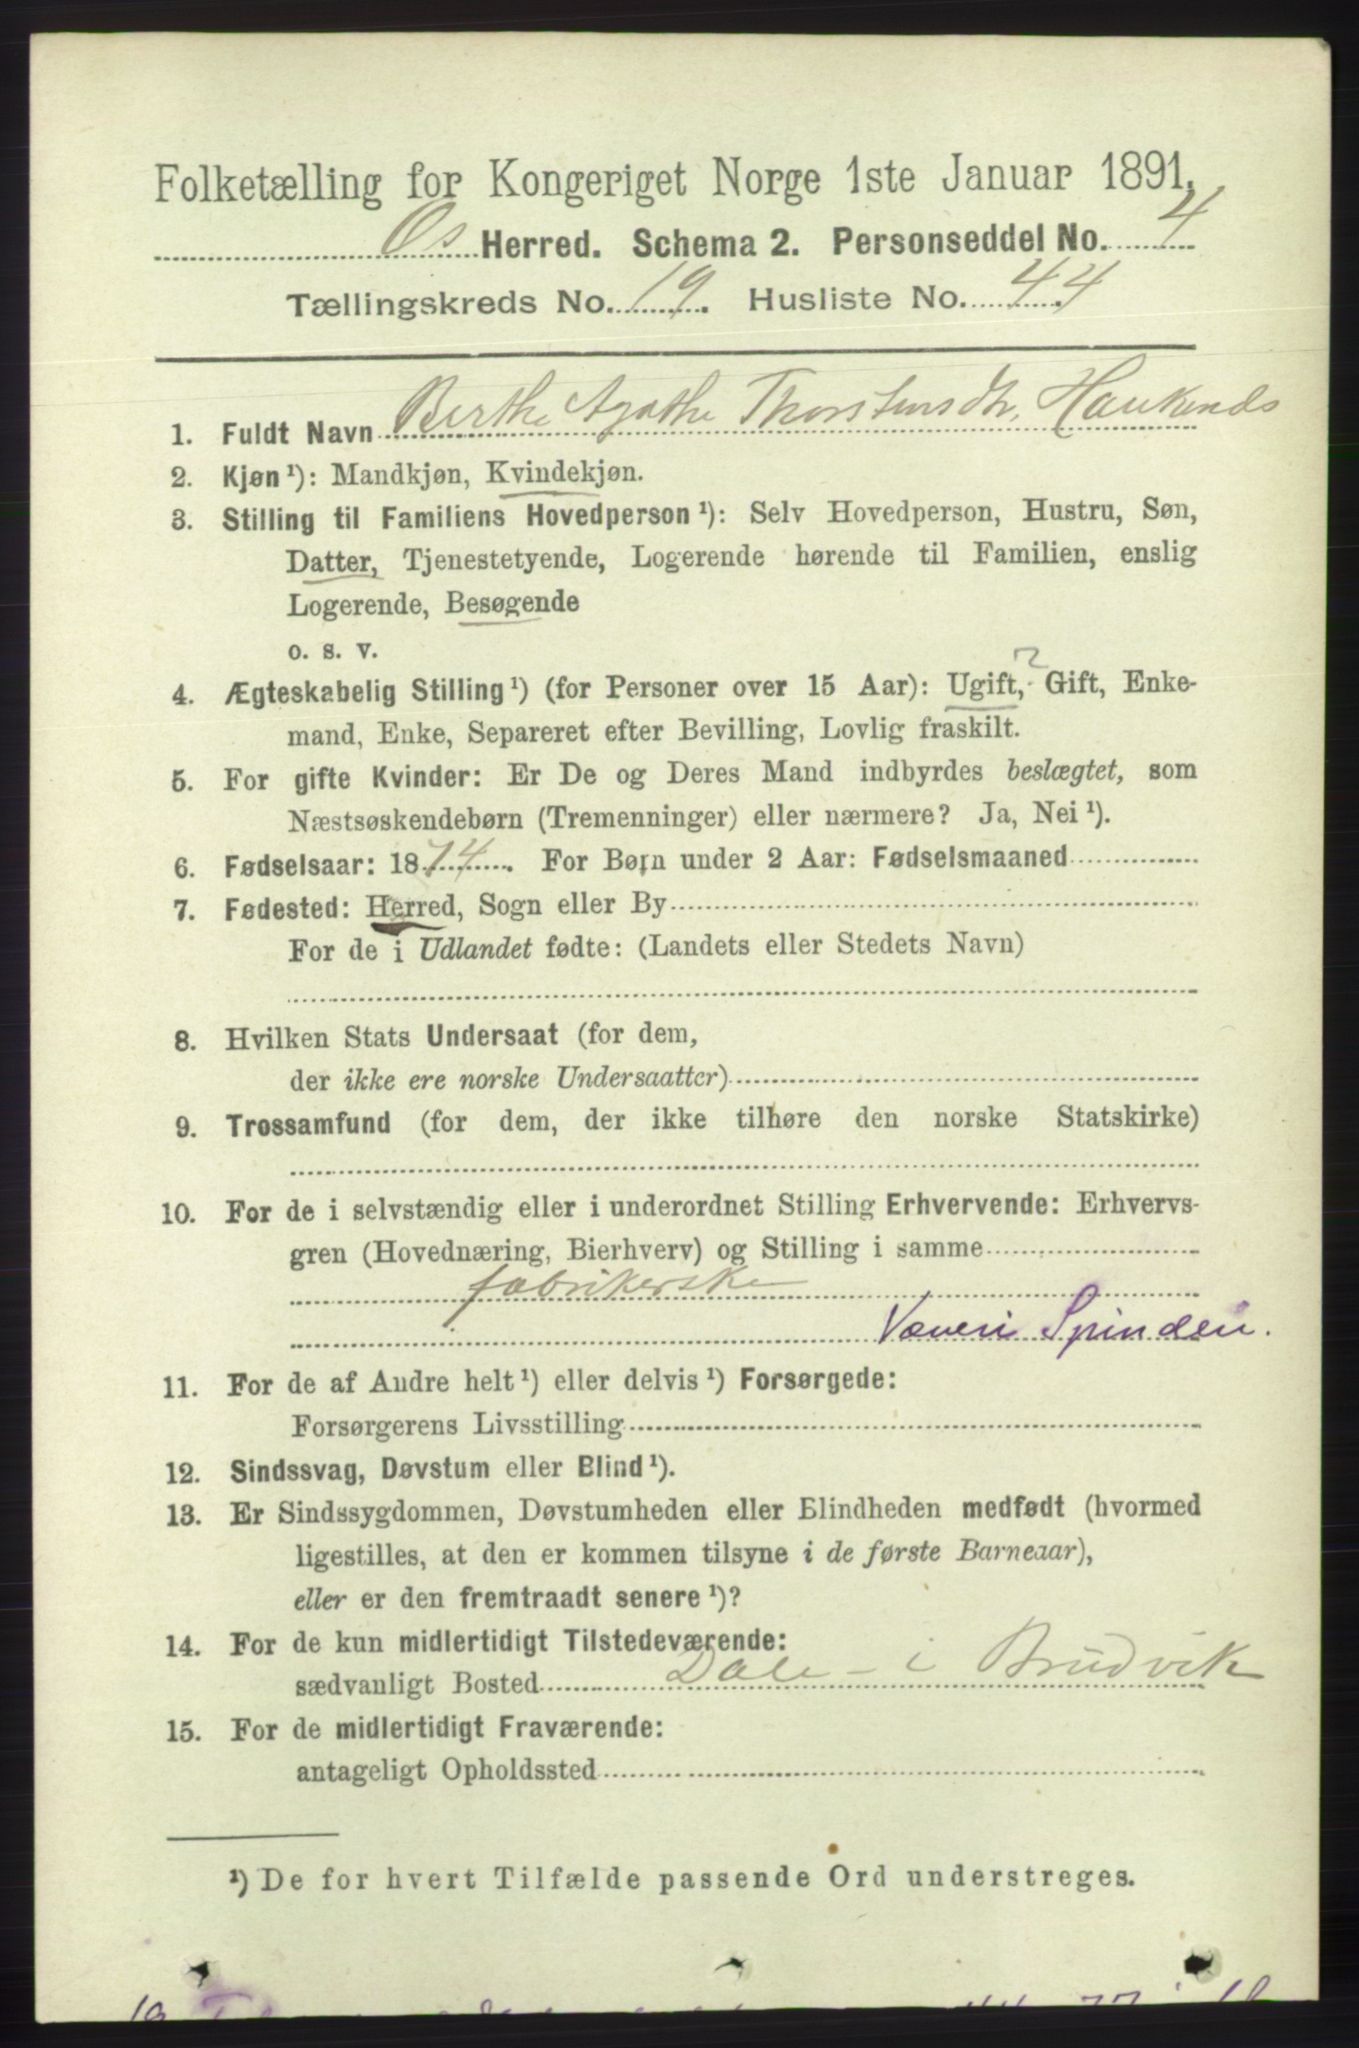 Folketælling for Kongeriget Norge 1ste Januar 1891.
Os Herred. Schema 2. Personseddel No. 4
Tællingskreds No. 19. Husliste No. 44
1. Fuldt Navn Berthe Agathe Thorstensdtr. Haukends
2. Kjøn ¹): Mandkjøn, Kvindekjøn.
3. Stilling til Familiens Hovedperson ¹): Selv Hovedperson, Hustru, Søn,
Datter, Tjenestetyende, Logerende hørende til Familien, enslig
Logerende, Besøgende
o. s. v.
4. Ægteskabelig Stilling ¹) (for Personer over 15 Aar): Ugift, Gift, Enke-
mand, Enke, Separeret efter Bevilling, Lovlig fraskilt.
5. For gifte Kvinder: Er De og Deres Mand indbyrdes beslægtet, som
Næstsøskendebørn (Tremenninger) eller nærmere? Ja, Nei ¹).
6. Fødselsaar: 1874. For Børn under 2 Aar: Fødselsmaaned
7. Fødested: Herred, Sogn eller By
For de i Udlandet fødte: (Landets eller Stedets Navn)
8. Hvilken Stats Undersaat (for dem,
der ikke ere norske Undersaatter)
9. Trossamfund (for dem, der ikke tilhøre den norske Statskirke)
10. For de i selvstændig eller i underordnet Stilling Erhvervende: Erhvervs-
gren (Hovednæring, Bierhverv) og Stilling i samme
fabrikerske
Væveri Spinderi.
11. For de af Andre helt ¹) eller delvis ¹) Forsørgede:
Forsørgerens Livsstilling
12. Sindssvag, Døvstum eller Blind ¹).
13. Er Sindssygdommen, Døvstumheden eller Blindheden medfødt (hvormed
ligestilles, at den er kommen tilsyne i de første Barneaar),
eller er den fremtraadt senere ¹)?
14. For de kun midlertidigt Tilstedeværende:
sædvanligt Bosted Dale - i Brudvik
15. For de midlertidigt Fraværende:
antageligt Opholdssted
¹) De for hvert Tilfælde passende Ord understreges.